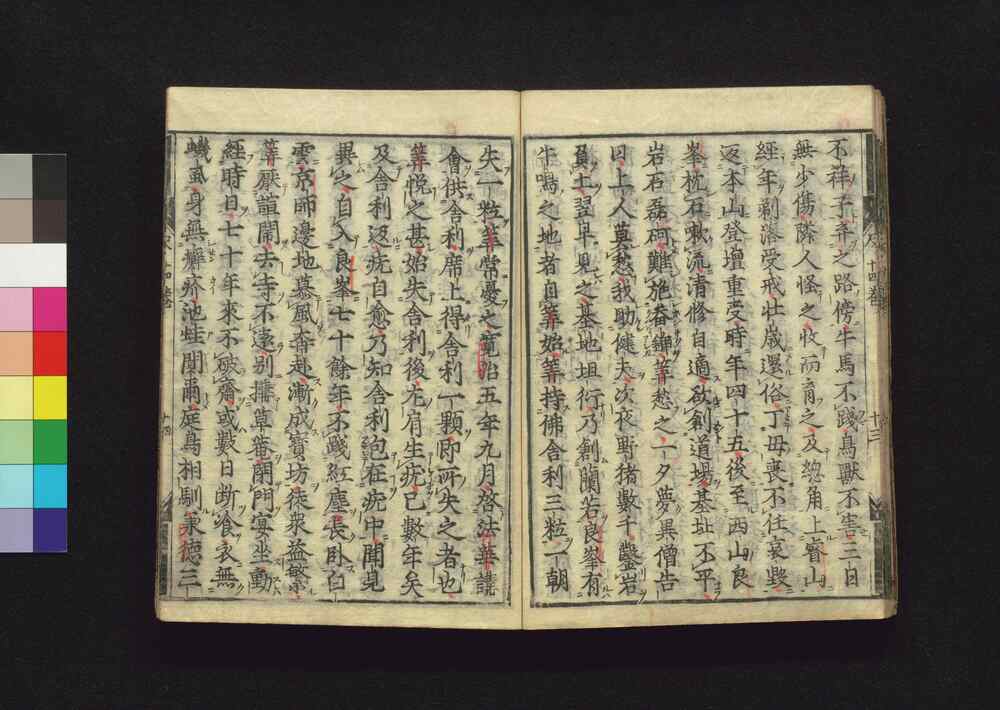 不祥子弃之路傍牛馬不踐鳥獸不害三日
無少傷隣人怪之收而育之及總角上睿山
經年剃落受戒壯歲還俗丁母喪不任哀毀
返本山登壇重受時年四十五後至西山良
峯枕石嗽流清修自適欲創道場基址不平
岩石磊砢難施畚鍤筭愁之一夕夢異僧告
曰上人莫愁我助健夫次夜野猪數千鑿岩
負土翌早見之基地坦衍乃創蘭若良峯有
牛鳴之地者自筭始筭持佛舍利三粒一朝
失一粒筭常憂之寛治五年九月啓法華講
會供舍利席上得舍利一顆即所失之者也
筭悅之甚始失舍利後左肩生疣已數年矣
及舍利返疣自愈乃知舍利包在疣中聞見
異之自入良峯七十餘年不踐紅塵長臥白
雲京師邊地慕風奔赴漸成寶坊徒衆益敏
筭厭諠鬧去寺不遠別構草菴閉門宴坐動
經時日七十年來不破齋或數日斷食衣無
蟣虱身無癬疥池蛙聞
庭鳥相馴承德三
十三
十四